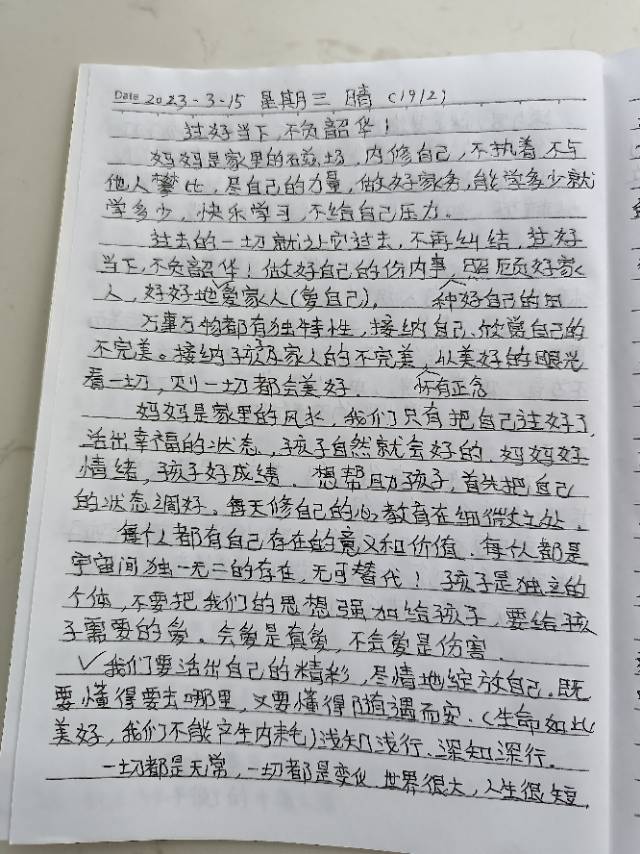 Date 2023-3-15 星期三 晴 (1912)
过好当下,不负韶华!
妈妈是家里的磁场,内修自己,不执着,不与
他人攀比,尽自己的力量,做好家务,能学多少就
学多少,快乐学习,不给自己压力。
过去的一切就让它过去,不再纠结,过好
当下,不负韶华!做好自己的份内事,照顾好家
人,好好地爱家人(爱自己),种好自己的因
万事万物都有独特性,接纳自己、欣赏自己的
不完美。接纳孩子及家人的不完美,以美好的眼光
看一切,则一切都会美好. 怀有正念
妈妈是家里的风水,我们只有把自己过好了,
活出幸福的状态,孩子自然就会好的,妈妈好
情绪,孩子好成绩。想帮助孩子,首先把自己
的状态调好。每天修自己的心,教育在细微之处。
每个人都有自己存在的意义和价值.每个人都是
宇宙间独一无二的存在,无可替代!孩子是独立的
个体,不要把我们的思想强加给孩子,要给孩
子需要的爱。会爱是真爱,不会爱是伤害.
✓我们要活出自己的精彩,尽情地绽放自己.既
要懂得要去哪里,又要懂得随遇而安.(生命如此
美好,我们不能产生内耗)浅知浅行、深知深行.
一切都是无常,一切都是变化.世界很大,人生很短,